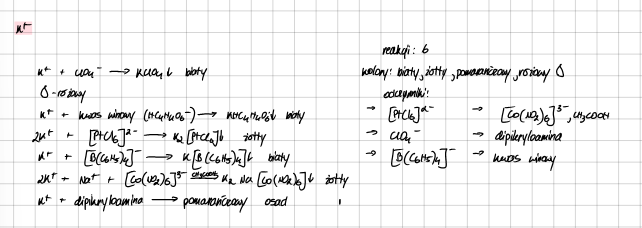 K⁺
K⁺ + ClO₄⁻ → KClO₄↓ biały
Δ - różowy
K⁺ + kwas winowy (HC₄H₄O₆⁻) → KHC₄H₄O₆↓ biały
2K⁺ + [PtCl₆]²⁻ → K₂[PtCl₆]↓ żółty
K⁺ + [B(C₆H₅)₄]⁻ → K[B(C₆H₅)₄]↓ biały
2K⁺ + Na⁺ + [Co(NO₂)₆]³⁻ CH₃COOH→ K₂Na[Co(NO₂)₆]↓ żółty
K⁺ + dipikryloamina → pomarańczowy osad
reakcji: 6
kolory: biały, żółty, pomarańczowy, różowy Δ
odczynniki:
→ [PtCl₆]²⁻ → [Co(NO₂)₆]³⁻, CH₃COOH
→ ClO₄⁻ → dipikryloamina
→ [B(C₆H₅)₄]⁻ → kwas winowy